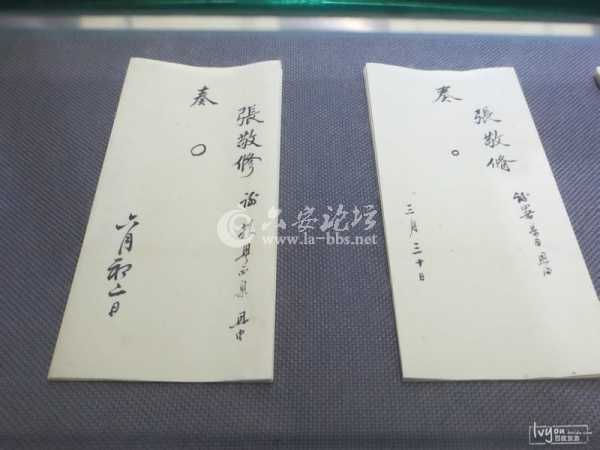 張敬修
奏
○
六月初二日
張敬修
奏
○
三月三十日
六安论坛
www.la-bbs.net
lvyou
百度旅游